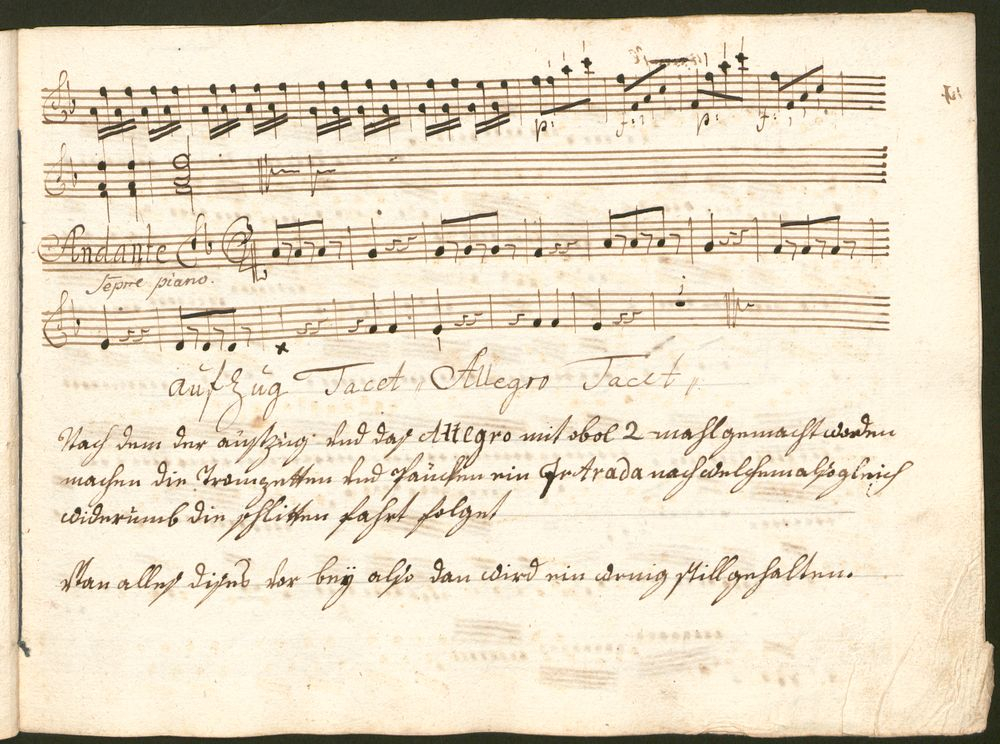 p: f: p: f:
Andante
Sempre piano.
aufzug Tacet, Allegro Tacet,
Nach dem der auffzug und das Allegro mit obol 2 mahl gemacht worden
machen die Trompetten und Paucken ein IntArada nach welchem also gleich
widerumb die schlitten fahrt folget
Wan alles dises vor beÿ also dan wird ein wenig still gehalten.